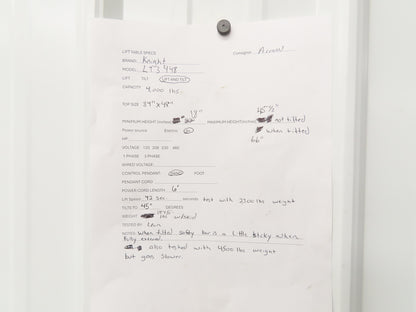 LIFT TABLE SPECS Consignor Accoval
BRAND: Knight
MODEL: LT3 448
LIFT TST LIFT AND TST
CAPACITY 4,000 lbs.
TOP SIZE 34" x 48"
18" 45 1/2"
MINIMUM HEIGHT (inches) MAXIMUM HEIGHT (inches) not tilted
Power source Electric Air when tilted
66"
HP
VOLTAGE 120 208 230 460
1 PHASE 3 PHASE
WIRED VOLTAGE
CONTROL PENDANT: HAND FOOT
PENDANT CORD
POWER CORD LENGTH 6'
Lift Speed 42 sec seconds test with 2300 lbs weight
TILTS TO 45° DEGREES
WEIGHT lbs w/skid
TESTED BY
NOTES: When tilted safety bar is a little sticky when
fully extended.
also tested with 4500 lbs weight
but goes slower.